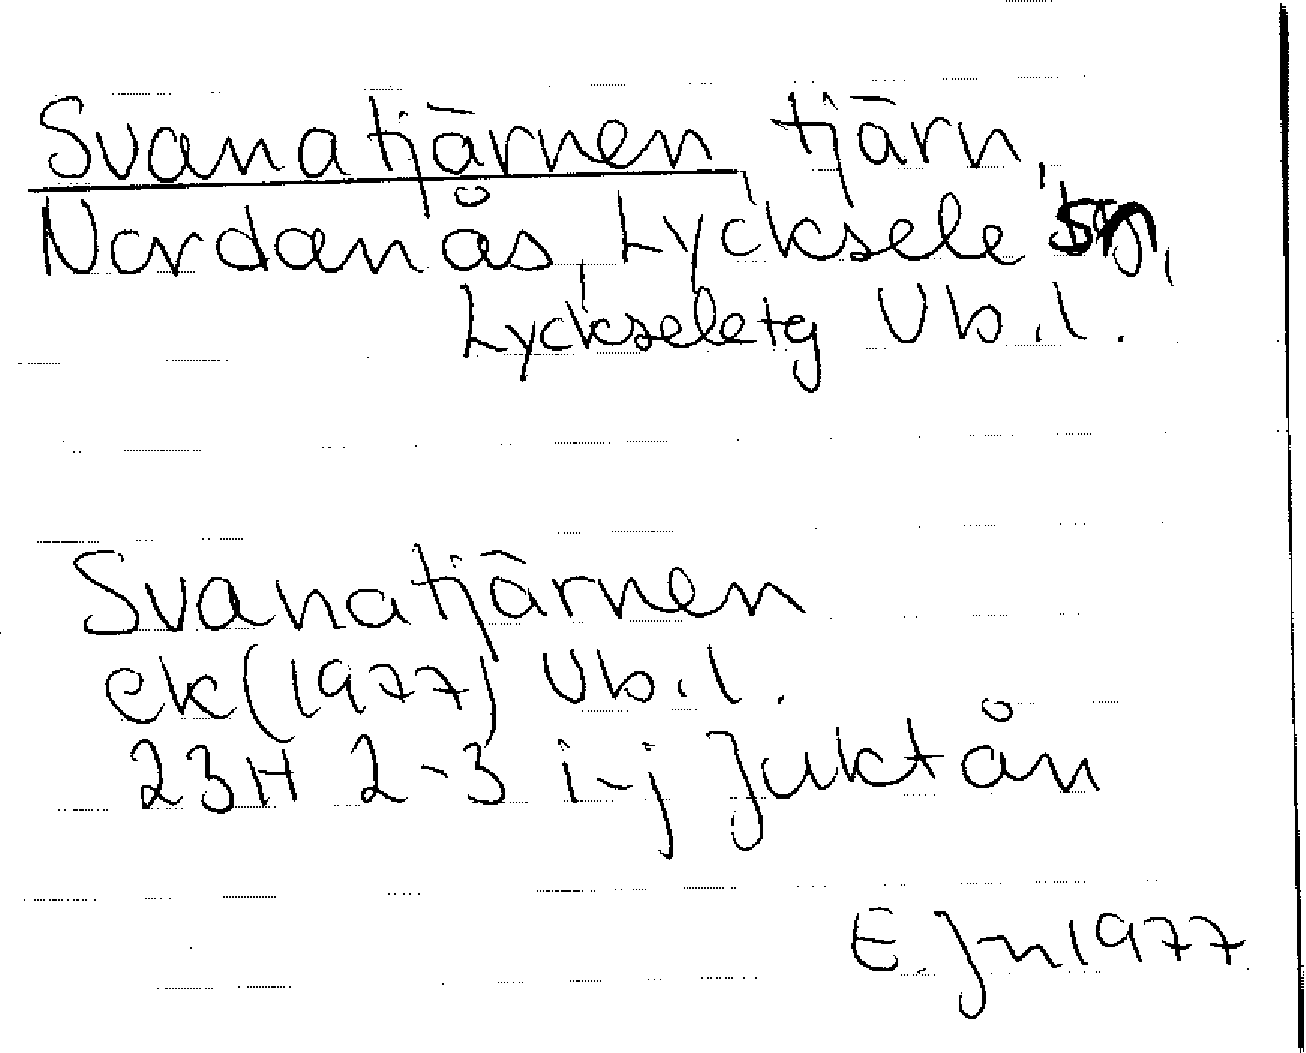 Svanatjärnen tjärn,
Nordanås, Lycksele sn,
Lyckseletg Vb.l.
Svanatjärnen
ek(1977) Vb.l.
23H 2-3 i-j Juktån
E. Jn 1977